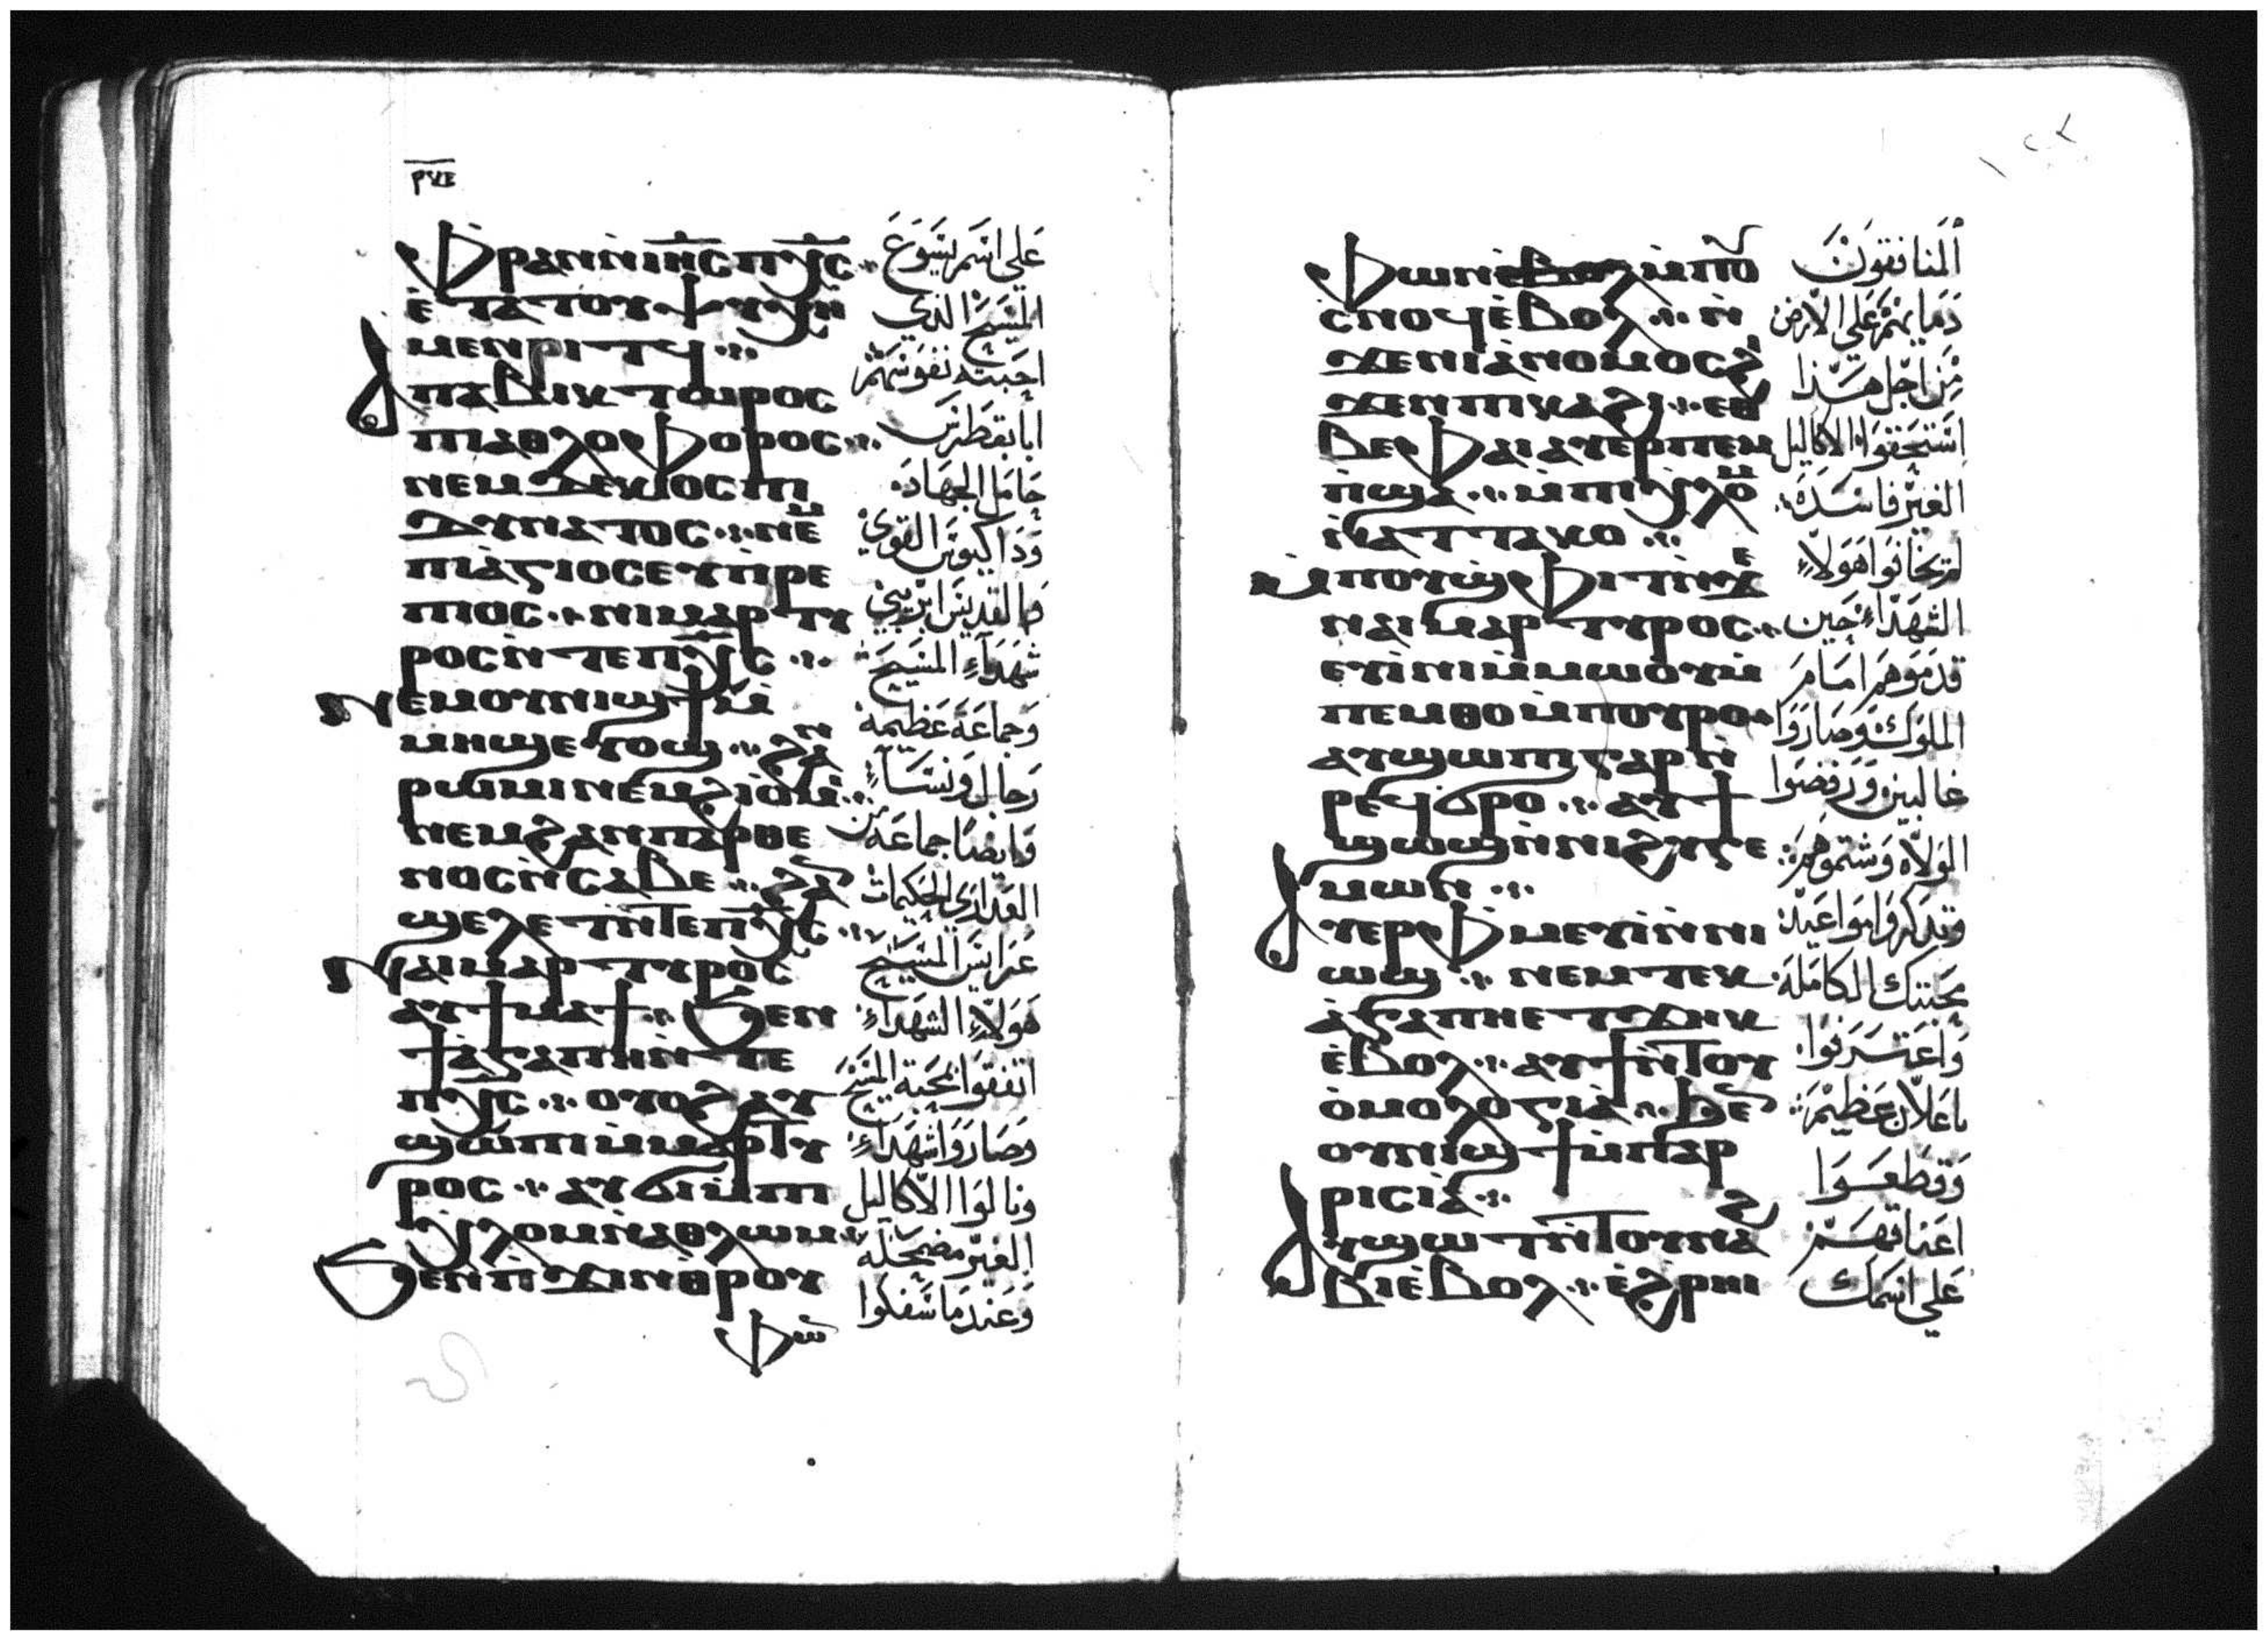 ⲣⲕⲉ
ⲫⲣⲁⲛ ⲛ̀ⲓⲏ̅ⲥ̅ ⲡⲭ̅ⲥ̅
ⲉ̀ⲧⲁ ⲧⲟⲩⲯⲩⲭⲏ
ⲙⲉⲛⲣⲓⲧϥ
ⲁⲡⲁ ⲃⲓⲕⲧⲱⲣⲟⲥ
ⲡⲓⲁⲑⲗⲟⲫⲟⲣⲟⲥ
ⲛⲉⲙ ⲇⲉⲕⲓⲟⲥ ⲡⲓ
ⲇⲩⲛⲁⲧⲟⲥ ⲛⲉⲙ
ⲡⲓⲁ̀ⲅⲓⲟⲥ ⲉⲩⲡⲣⲉ
ⲡⲓⲟⲥ ⲛⲓⲙⲁⲣⲧⲩ
ⲣⲟⲥ ⲛ̀ⲧⲉ ⲡⲭ̅ⲥ̅
ⲛⲉⲙ ⲟⲩⲛⲓϣϯ ⲙ̀
ⲙⲏϣ ⲉⲧⲟϣ ϩⲁⲛ
ⲣⲱⲙⲓ ⲛⲉⲙ ϩⲓⲟ̀ⲙⲓ
ⲛⲉⲙ ϩⲁⲛⲡⲁⲣⲑⲉ
ⲛⲟⲥ ⲛ̀ⲥⲁⲃⲉ ϩⲁⲛ
ϣⲉⲗⲉⲧ ⲛ̀ⲧⲉ ⲡⲭ̅ⲥ̅
ⲛⲁⲓⲙⲁⲣⲧⲩⲣⲟⲥ
ⲁⲩϯⲙⲁϯ ϧⲉⲛ
ϯⲁ̀ⲅⲁⲡⲏ ⲛ̀ⲧⲉ
ⲡⲭ̅ⲥ̅ ⲟⲩⲟϩ ⲁⲩ
ϣⲱⲡⲓ ⲙ̀ⲙⲁⲣⲧⲩ
ⲣⲟⲥ ⲁⲩϭⲓ ⲙ̀ⲡⲓ
ⲭⲗⲟⲙ ⲛ̀ⲁⲑⲗⲱⲙ
ϧⲉⲛ ⲡϫⲓⲛⲑⲣⲟⲩ
ⲫⲱⲛ
على اسم يسوع
المسيح الذي
احبته نفوسهم
ابا بقطر
حامل الجهاد
ودا كيوس القوي
والقديس ابريبي
شهداء المسيح
وجماعة عظيمة
رجال ونساء
وايضا جماعة من
العذارى الحكيمات
عرايس المسيح
هولاء الشهداء
اتفقوا بمحبة المسيح
وصاروا شهداء
ونالوا الاكاليل
الغير مضمحلة
وعندما سفكوا
ⲫⲱⲛ ⲉⲃⲟⲗ ⲙ̀ⲡⲟⲩ
ⲥⲛⲟϥ ⲉ̀ⲃⲟⲗ ⲛ̀
ϫⲉ ⲛⲓⲁ̀ⲛⲟⲙⲟⲥ ϩⲓ
ϫⲉⲛ ⲡⲓⲕⲁϩⲓ ⲉⲑ
ⲃⲉ ⲫⲁⲓ ⲁⲩⲉⲣⲡⲉⲙ
ⲡ̀ϣⲁ ⲙ̀ⲡⲓⲭⲗⲟⲙ
ⲛ̀ⲁⲧⲧⲁⲕⲟ
ⲙ̀ⲡⲟⲩϣⲫⲓⲧ ⲛ̀ϫⲉ
ⲛⲁⲓⲙⲁⲣⲧⲩⲣⲟⲥ
ⲉⲩⲓ̀ⲛⲓ ⲙ̀ⲙⲱⲟⲩ ⲙ̀
ⲡⲉⲙⲑⲟ ⲙ̀ⲡⲟⲩⲣⲟ
ⲁⲩϣⲱⲡⲓ ⲅⲁⲣ ⲛ̀
ⲣⲉϥϭⲣⲟ ⲁⲩϯ
ϣⲱϣ ⲛ̀ⲛⲓϩⲩⲅⲉ
ⲙⲱⲛ
ⲁⲩⲉⲣⲫⲙⲉⲩⲓ̀ ⲛ̀ⲛⲓ
ⲱϣ ⲛⲉⲙ ⲧⲉⲕ
ⲁ̀ⲅⲁⲡⲏ ⲉⲧϫⲏⲕ
ⲉ̀ⲃⲟⲗ ⲁⲩϯ ⲛ̀ⲧⲟⲩ
ⲟ̀ⲙⲟⲗⲟⲅⲓⲁ ϧⲉⲛ
ⲟⲩⲛⲓϣϯ ⲙ̀ⲡⲁⲣ
ⲣⲓⲥⲓⲁ̀
ⲁⲩϣⲱⲧ ⲛ̀ⲧⲟⲩⲛⲁϩ
ⲃⲓ ⲉ̀ⲃⲟⲗ ⲉ̀ϩⲣⲏⲓ
المنافقون
دمايهم على الارض
من اجل هذا
استحقوا الاكاليل
الغير فاسدة
لم يخافوا هولاء
الشهداء حين
قدموهم امام
الملوك وصاروا
غالبين ورفضوا
الولاه وشتموهم
وتذكروا مواعيد
محبتك الكاملة
واعترفوا
باعلان عظيم
وقطعوا
اعناقهم
على اسمك